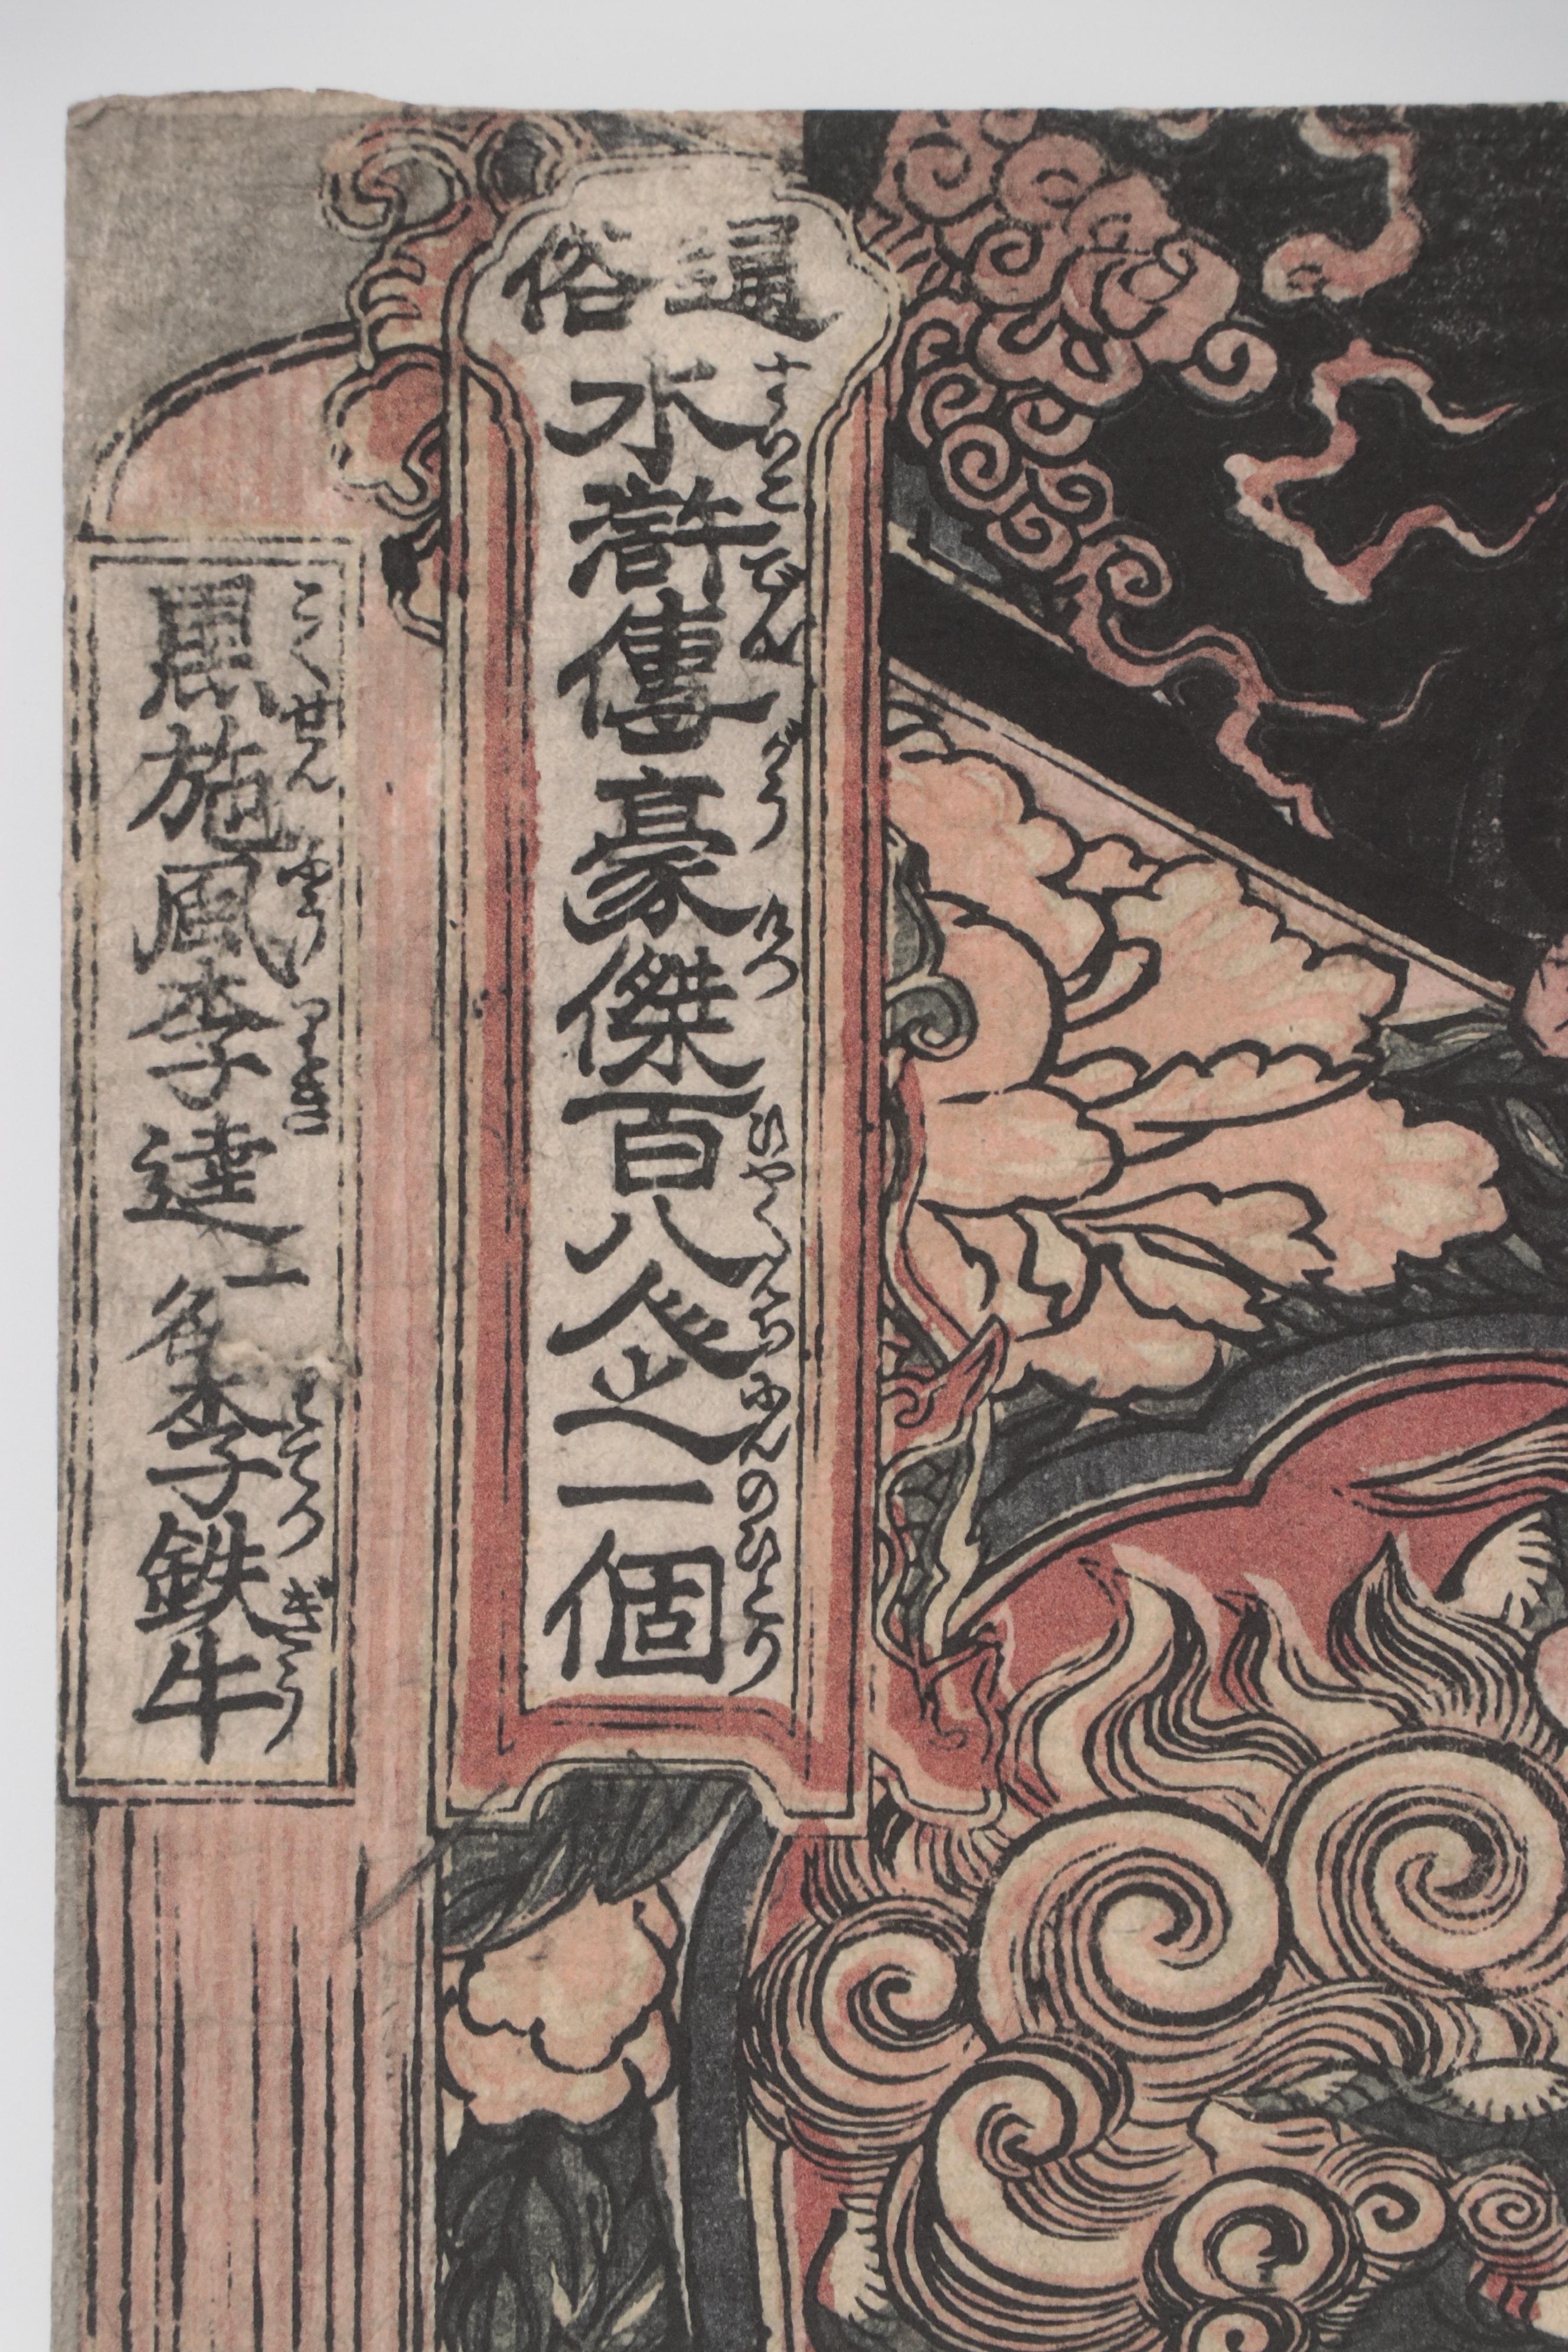 通俗
すいこでんがうけつひやくはちにんのひとり
水滸傳豪傑百八人之一個
こくせんふう
黒旋風李逵一名李鉄牛
りてつぎう